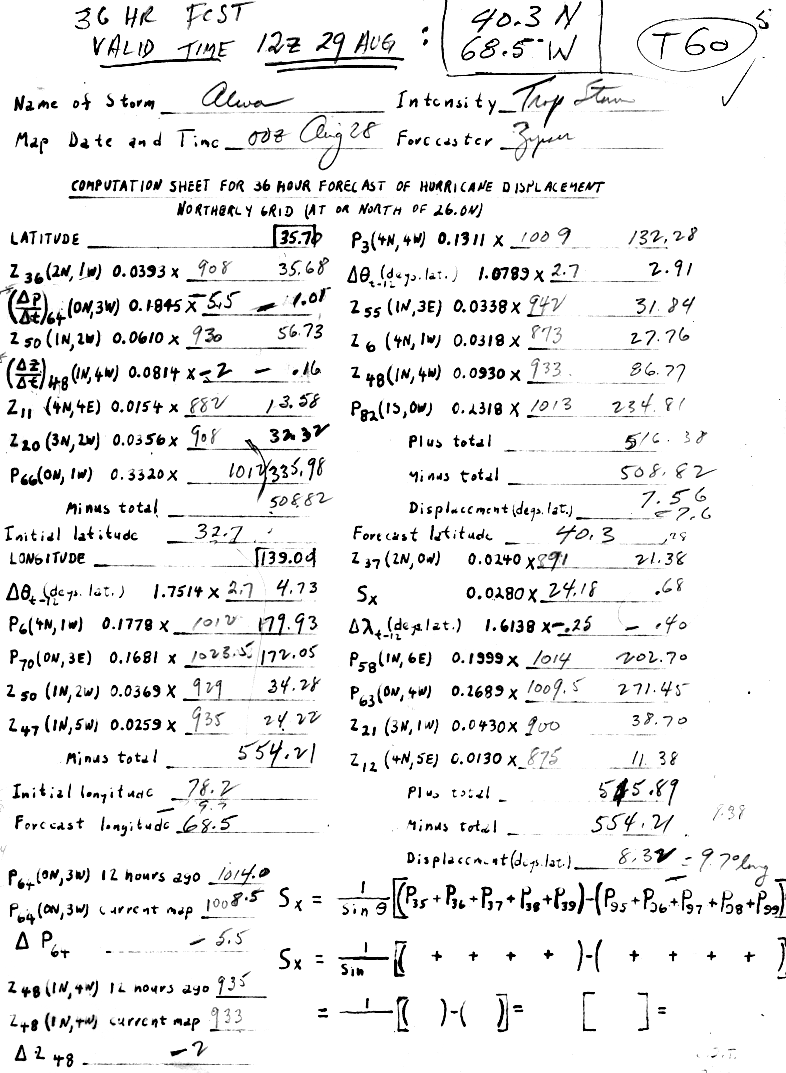 36 HR FCST
VALID TIME 12Z 29 AUG :
40.3 N
68.5 W
T60
5
Name of Storm Alma Intensity Trop Storm
Map Date and Time 00Z Aug 28 Forecaster
COMPUTATION SHEET FOR 36 HOUR FORECAST OF HURRICANE DISPLACEMENT
NORTHERLY GRID (AT OR NORTH OF 26.0N)
LATITUDE 35.70
Z36 (2N, 1W) 0.0393 x 908 35.68
(Δp/Δt)64 (0N, 3W) 0.1845 x -5.5 - 1.01
Z50 (1N, 2W) 0.0610 x 930 56.73
(Δz/Δt)48 (1N, 4W) 0.0814 x -2 - .16
Z11 (4N, 4E) 0.0154 x 882 13.58
Z20 (3N, 2W) 0.0356 x 908 32.32
P66 (0N, 1W) 0.3320 x 1012 335.98
Minus total 508.82
Initial latitude 32.7
P3 (4N, 4W) 0.1311 x 1009 132.28
Δθt-12 (degs. lat.) 1.0789 x 2.7 2.91
Z55 (1N, 3E) 0.0338 x 942 31.84
Z6 (4N, 1W) 0.0318 x 873 27.76
Z48 (1N, 4W) 0.0930 x 933 86.77
P82 (1S, 0W) 0.2318 x 1013 234.81
Plus total 516.38
Minus total 508.82
Displacement (degs. lat.) 7.56
= 7.6
Forecast latitude 40.3
LONGITUDE 139.00
Δθt-12 (degs. lat.) 1.7514 x 2.7 4.73
P6 (4N, 1W) 0.1778 x 1012 179.93
P70 (0N, 3E) 0.1681 x 1023.5 172.05
Z50 (1N, 2W) 0.0369 x 929 34.28
Z47 (1N, 5W) 0.0259 x 935 24.22
Minus total 554.21
Initial longitude 78.2
9.7
Forecast longitude 68.5
Z37 (2N, 0W) 0.0240 x 891 21.38
Sx 0.0280 x 24.18 .68
Δλt-12 (degs lat.) 1.6138 x -.25 - .40
P58 (1N, 6E) 0.1999 x 1014 202.70
P63 (0N, 4W) 0.2689 x 1009.5 271.45
Z21 (3N, 1W) 0.0430 x 900 38.70
Z12 (4N, 5E) 0.0130 x 875 11.38
Plus total 545.89
Minus total 554.21
Displacement (degs. lat.) 8.32 = 9.7° long
P64 (0N, 3W) 12 hours ago 1014.0
P64 (0N, 3W) current map 1008.5
Δ P64 - 5.5
Z48 (1N, 4W) 12 hours ago 935
Z48 (1N, 4W) current map 933
Δ Z48 -2
Sx = 1/Sin θ [(P35 + P36 + P37 + P38 + P39) - (P95 + P96 + P97 + P98 + P99)]
Sx = 1/Sin [( + + + + ) - ( + + + + )]
= 1/ [( ) - ( )] = [ ] =